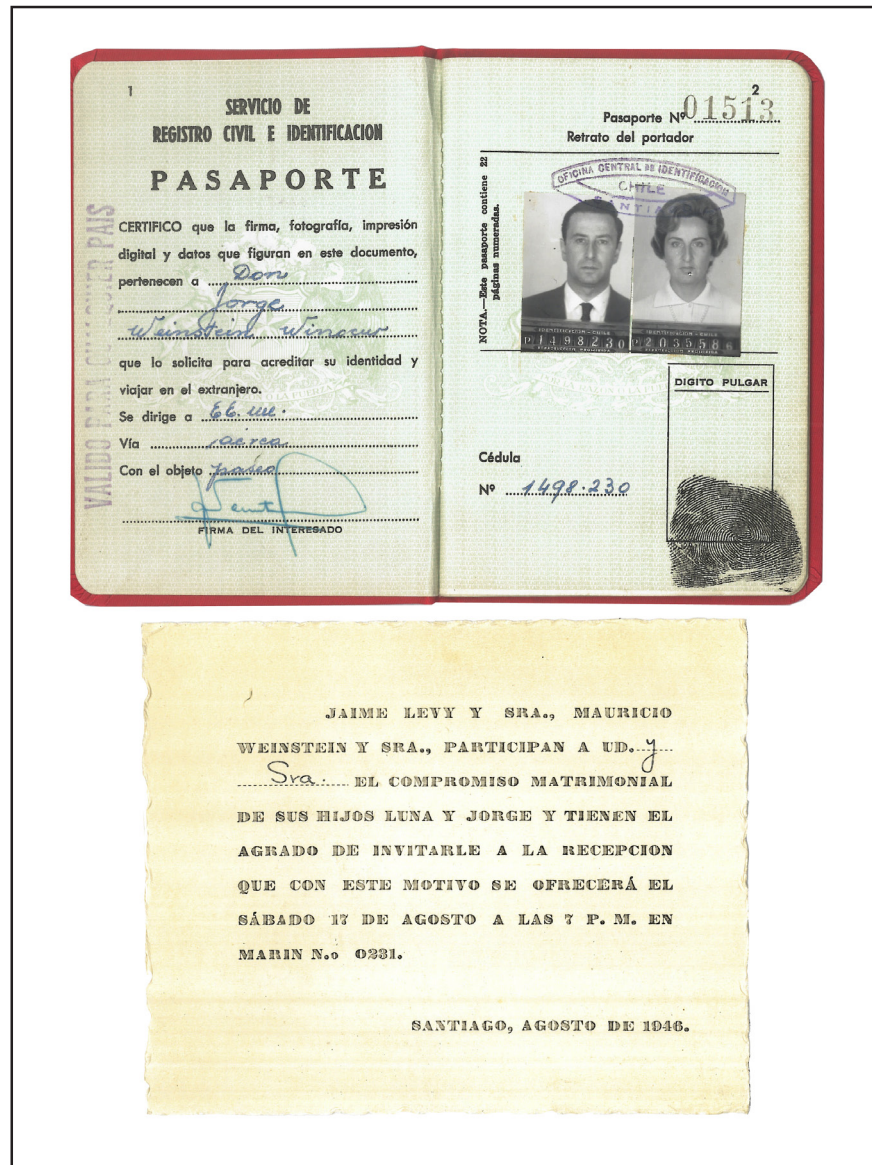 1
SERVICIO DE
REGISTRO CIVIL E IDENTIFICACION
PASAPORTE
CERTIFICO que la firma, fotografía, impresión
digital y datos que figuran en este documento,
pertenecen a Don
Jorge
Weinstein Winocur
que lo solicita para acreditar su identidad y
viajar en el extranjero.
Se dirige a EE. UU.
Vía aérea
Con el objeto paseo
FIRMA DEL INTERESADO
VALIDO PARA CUALQUIER PAIS
2
Pasaporte Nº 01513
Retrato del portador
NOTA.—Este pasaporte contiene 22
páginas numeradas.
OFICINA CENTRAL DE IDENTIFICACION
CHILE
SANTIAGO
IDENTIFICACION - CHILE
1498230
IDENTIFICACION - CHILE
2035586
DIGITO PULGAR
Cédula
Nº 1498.230
JAIME LEVY Y SRA., MAURICIO
WEINSTEIN Y SRA., PARTICIPAN A UD. y
Sra. EL COMPROMISO MATRIMONIAL
DE SUS HIJOS LUNA Y JORGE Y TIENEN EL
AGRADO DE INVITARLE A LA RECEPCION
QUE CON ESTE MOTIVO SE OFRECERÁ EL
SÁBADO 17 DE AGOSTO A LAS 7 P. M. EN
MARIN N.o 0231.
SANTIAGO, AGOSTO DE 1946.